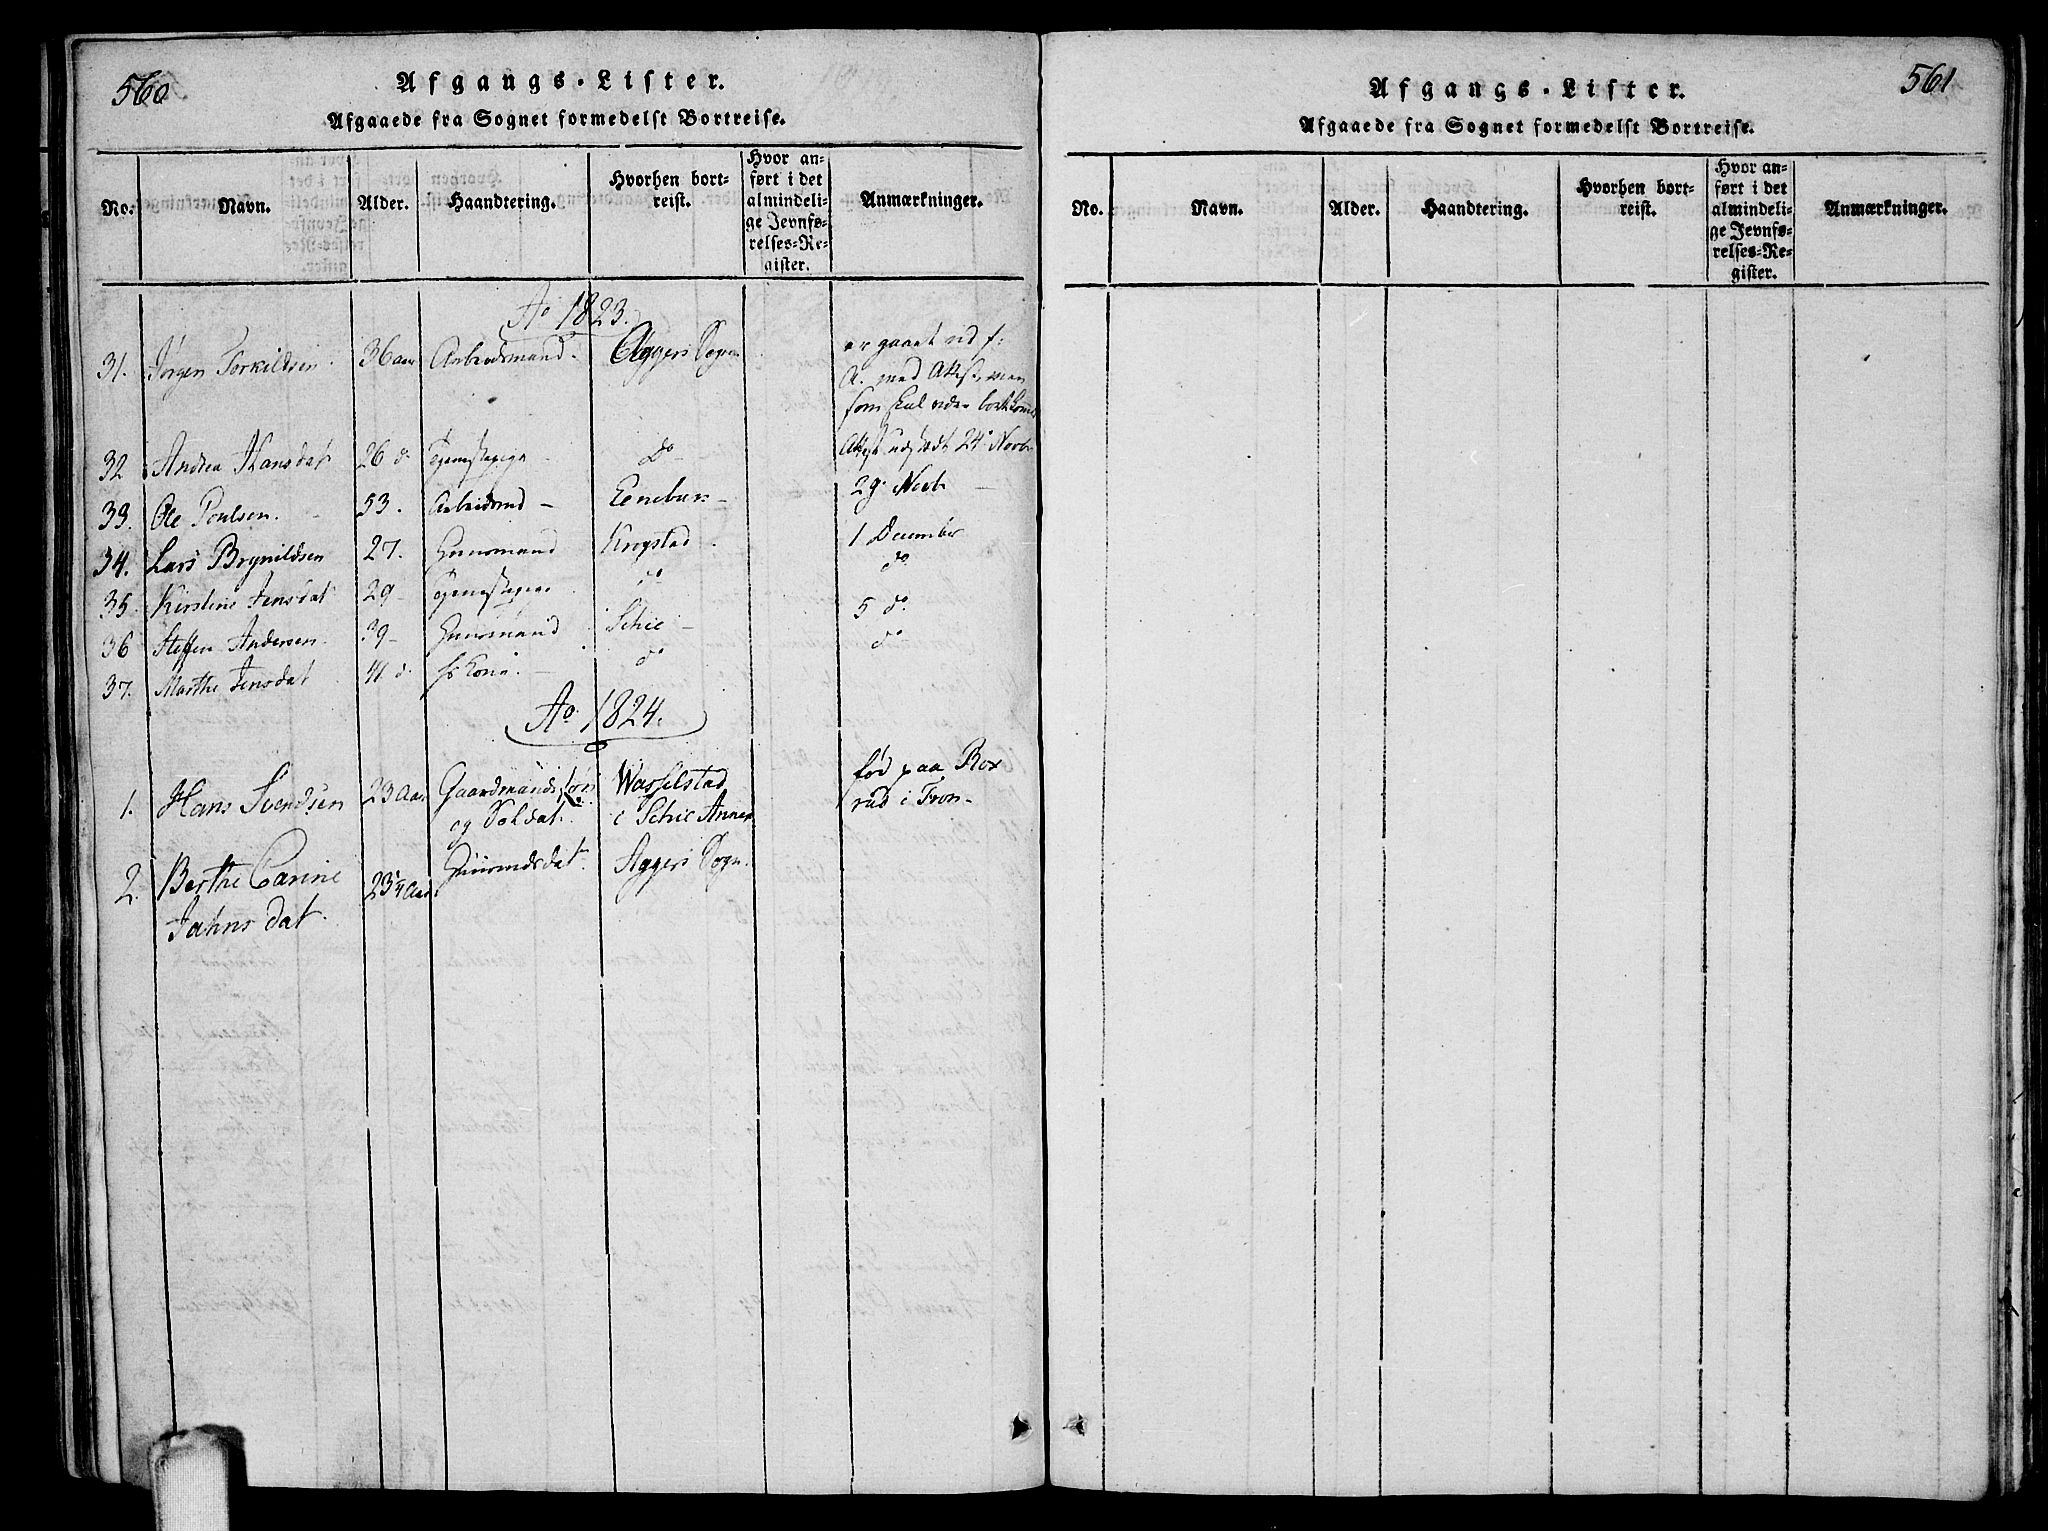 560
Afgangs-Lister.
Afgaaede fra Sognet formedelst Bortreise.
No. Navn. Alder. Haandtering. Hvorhen bortreist. Hvor anført i det almindelige Jevnførelses-Register. Anmærkninger.
Ao 1823.
31. Jørgen Torkildsen. 36 aar Arbeidsmand. Aggers Sogn er gaaet ud f:
A. med Attest, men
som skal være bortkommet
32 Andrea Hansdat 26 do Tjenestepige do Attest udstædt 24de Novbr
33. Ole Poulsen. 53. Arbeidsmd Enebak 29 Novb
34. Lars Brynildsen 27. Huusmand Krogstad 1 December
35. Kirstine Jensdat 29 Tjenestepige do do
36 Steffen Andersen 39 Huusmand Schie 5 do
37. Marthe Jensdat 41 do hs Kone. do do
Ao 1824.
1. Hans Svendsen 23 Aar Gaardmands søn Wasselstad fød paa Box
og Soldat. i Schie Annex rud i Fron
2. Berthe Carine 23 1/4 Aar Huusmdsdat Aggers Sogn.
Jahns dat.
561
Afgangs-Lister.
Afgaaede fra Sognet formedelst Bortreise.
No. Navn. Alder. Haandtering. Hvorhen bortreist. Hvor anført i det almindelige Jevnførelses-Register. Anmærkninger.